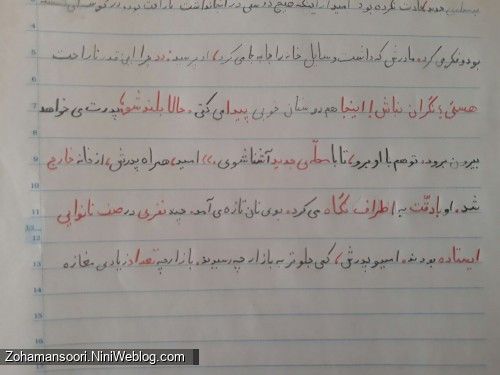 بود و فکر می کرد. مادرش که داشت وسایل خانه را جابه جا می کرد، از او پرسید: چرا این قدر ناراحت
هستی؟ نگران نباش! اینجا هم دوستان خوبی پیدا می کنی. حالا بلند شو؛ پدرت می خواهد
بیرون برود. تو هم با او برو، تا با محلّهی جدید آشنا شوی.» امید، همراه پدرش، از خانه خارج
شد. او با دقّت به اطراف نگاه می کرد. بوی نان تازه می آمد. چند نفری در صف نانوایی
ایستاده بودند. امید و پدرش، کمی جلوتر به بازارچه رسیدند. بازارچه تعداد زیادی مغازه
4
5
6
7
8
9
10
11
12
13
14
15
16
Zohamansoori.NiniWeblog.com